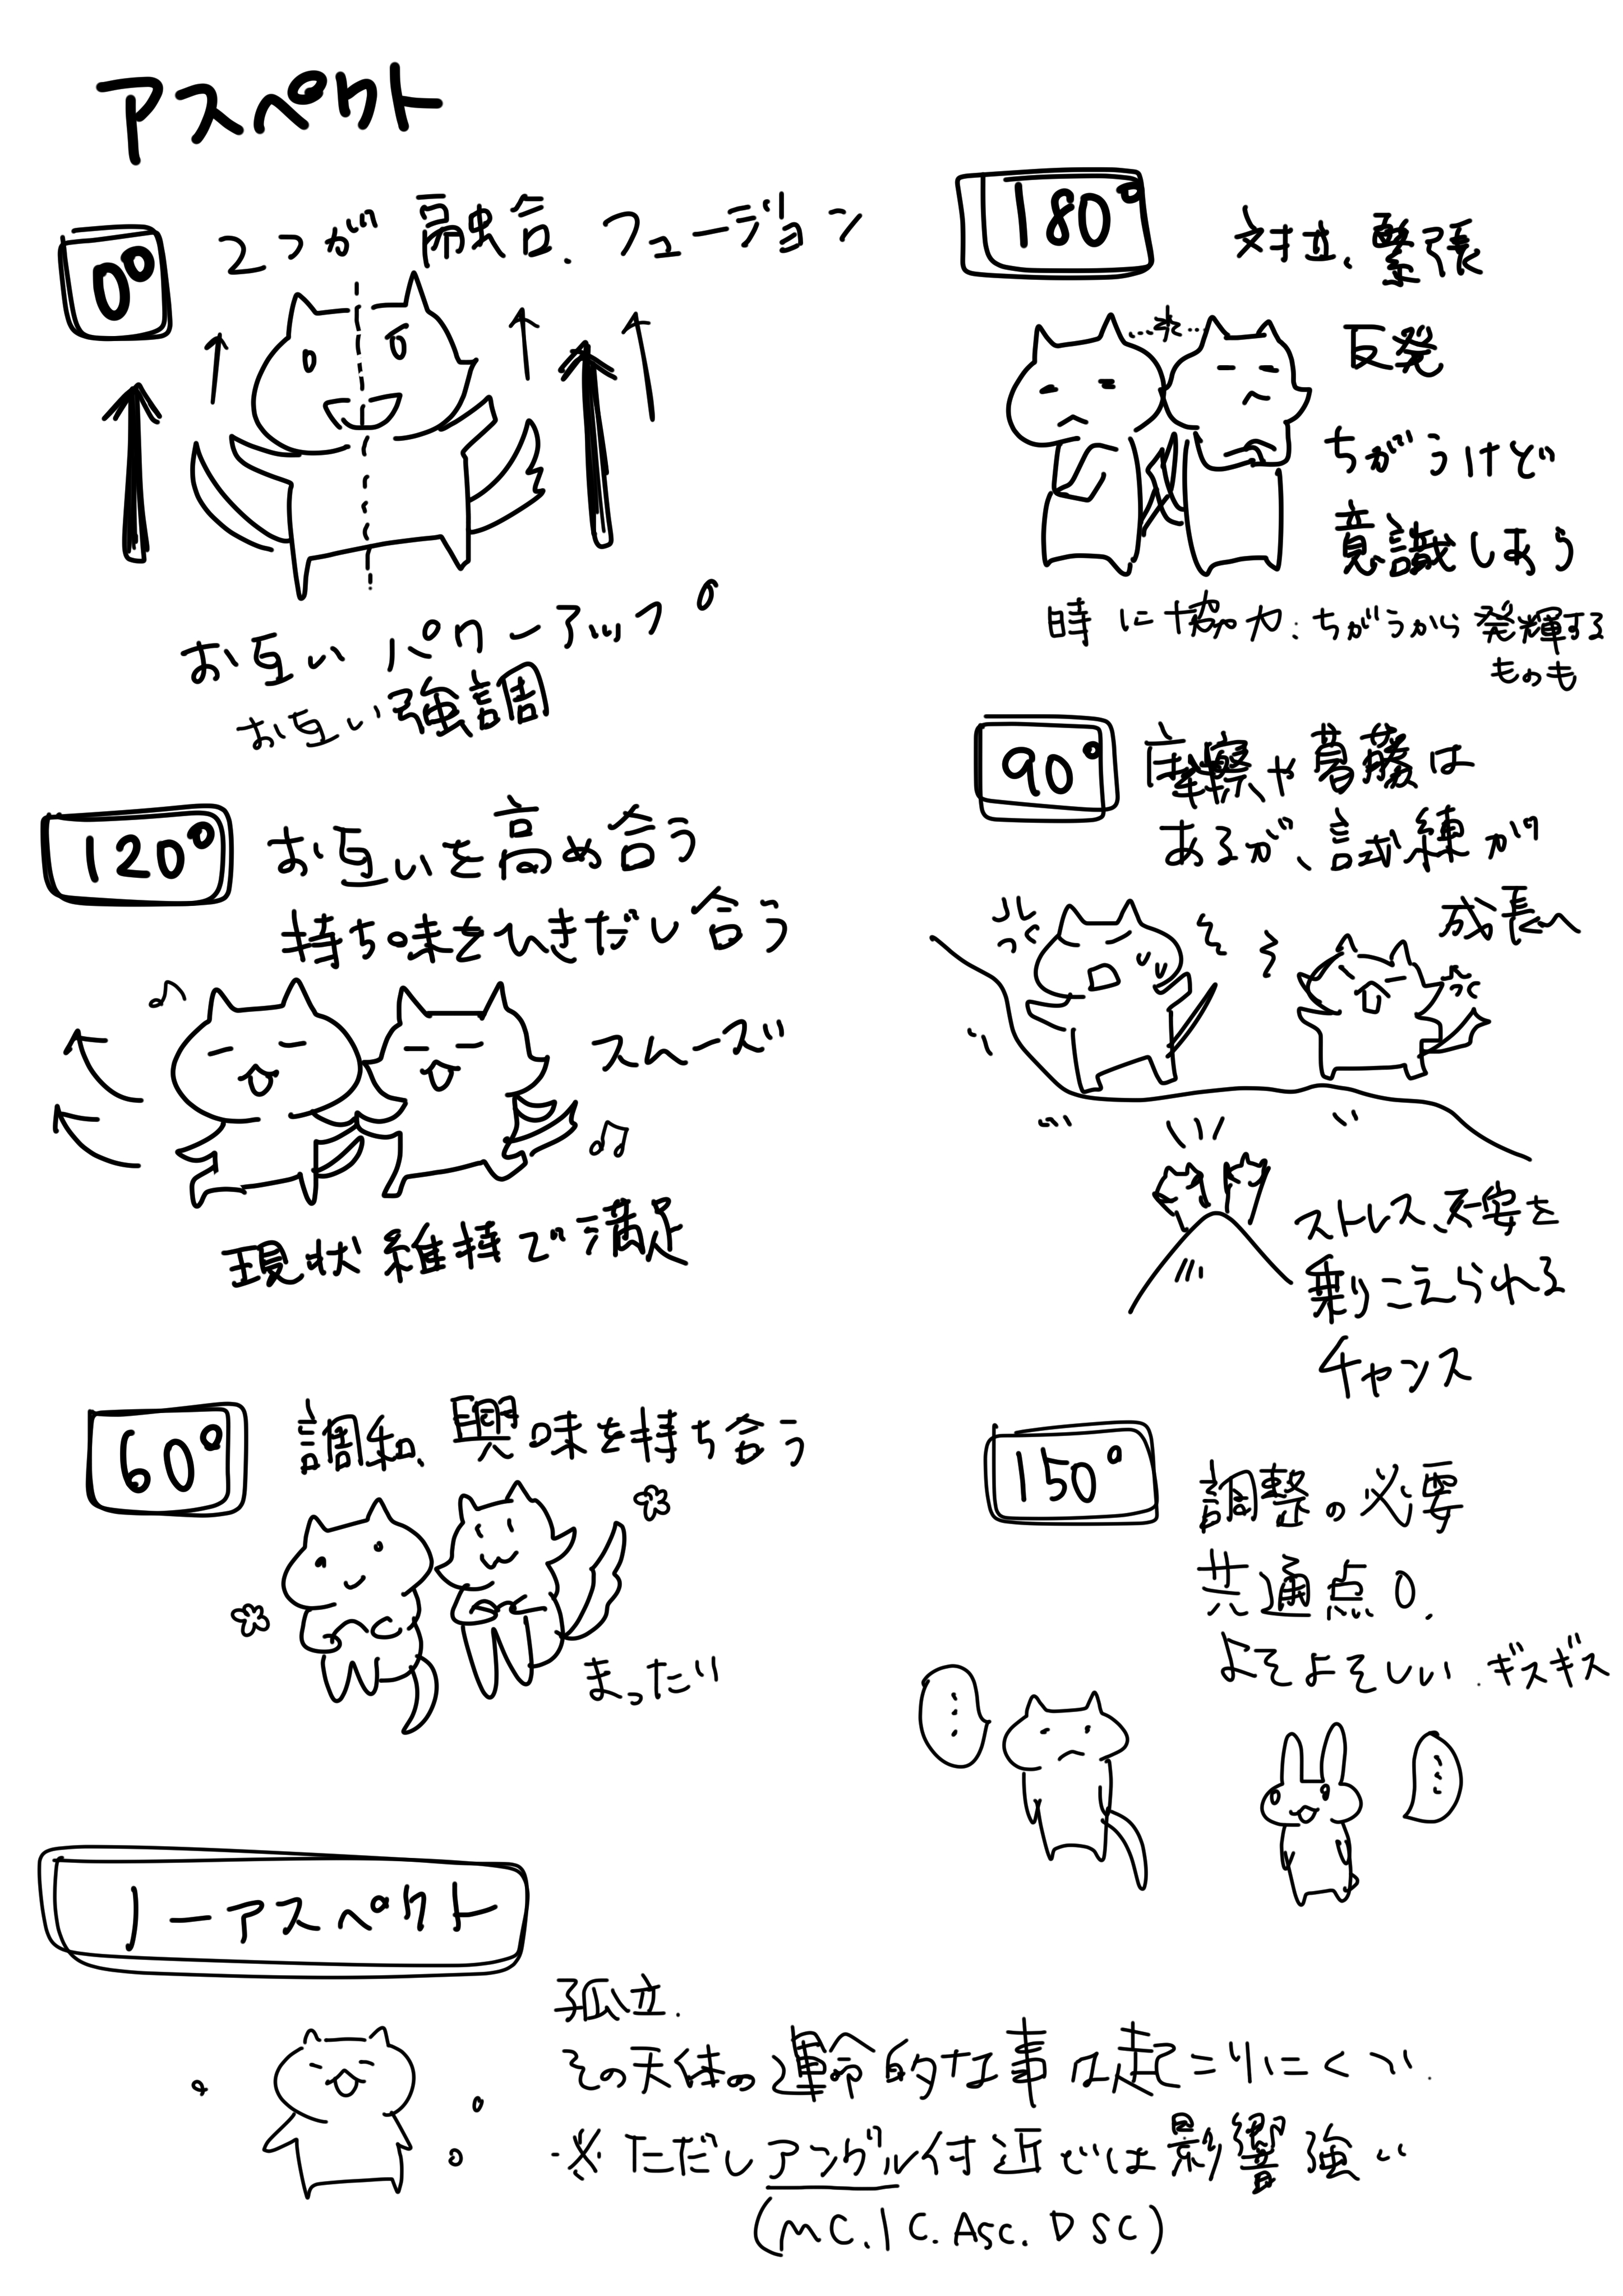 アスペクト
0°
2つが融合、フュージョン
お互いパワーアップ
お互い強調
120°
お互いを高め合う
持ち味をひきだし合う
スムーズ
現状維持で満足
60°
調和、興味を持ち合う
まったり
ノーアスペクト
孤立.
その天体の運命的な事は起こりにくい.
※ただしアングル付近では影響強い
(MC. IC. Asc. DSC)
180°
対立、緊張
反発
ちがうけど
意識しあう
時に協力.ちがうから発揮する
ものも
90°
摩擦や葛藤は
あるが、試練が
成長へ
ストレス、不安を
乗りこえられる
チャンス
150°
調整の必要
共通点0.
よそよそしい.ギスギス